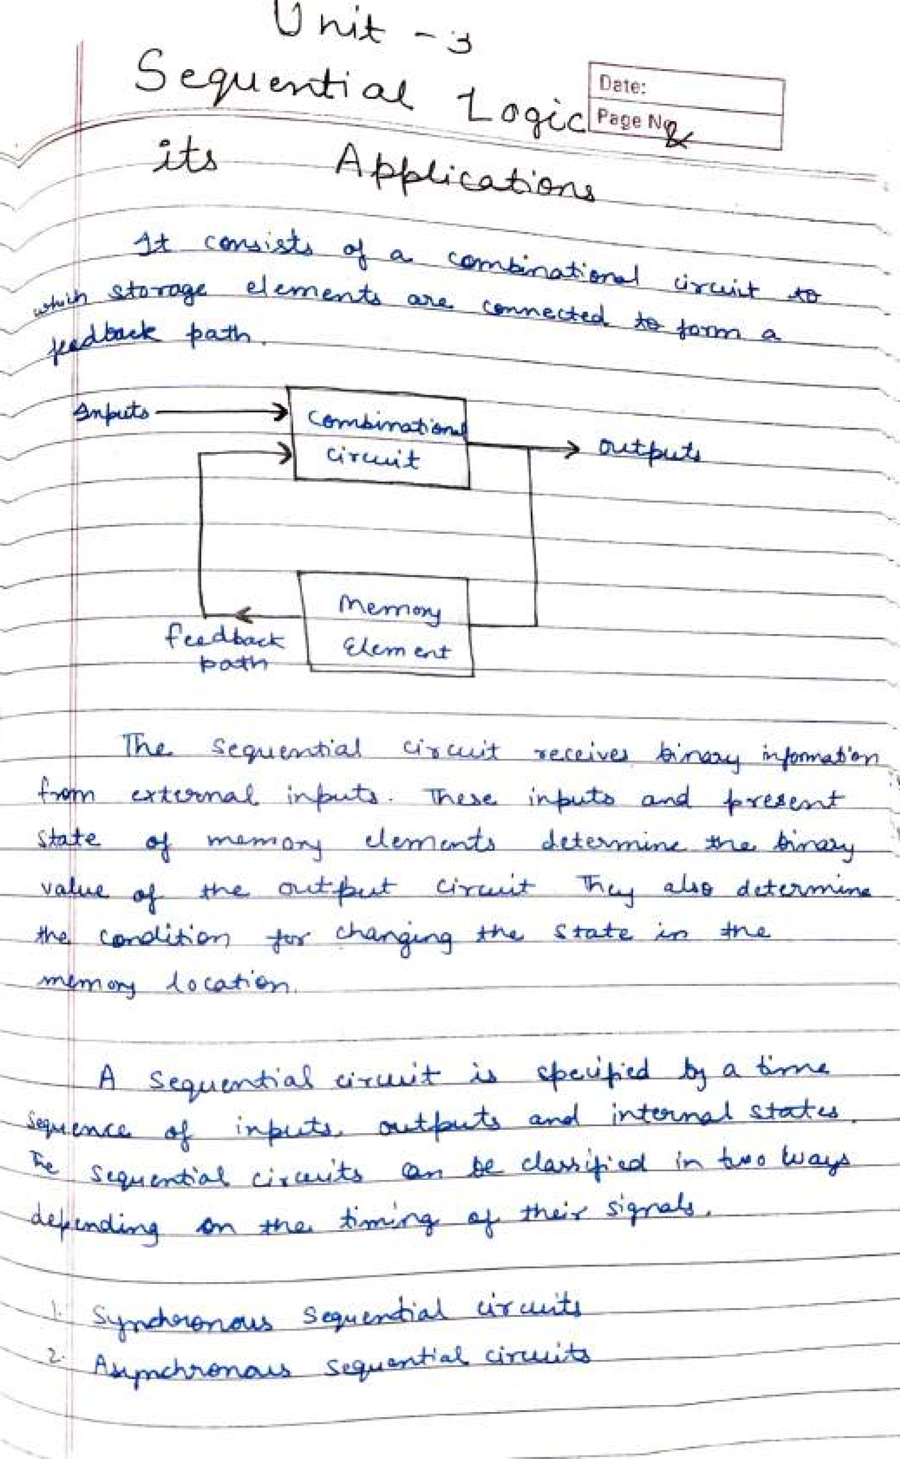 Unit - 3
Sequential Logic &
its Applications
Date:
Page No.
It consists of a combinational circuit to
which storage elements are connected to form a
feedback path.
Inputs
Combinational
circuit
outputs
Memory
Element
feedback
path
The sequential circuit receives binary information
from external inputs. These inputs and present
state of memory elements determine the binary
value of the output circuit They also determine
the condition for changing the state in the
memory location.
A sequential circuit is specified by a time
sequence of inputs, outputs and internal states.
The sequential circuits can be classified in two ways
depending on the timing of their signals.
1. Synchronous sequential circuits
2. Asynchronous sequential circuits